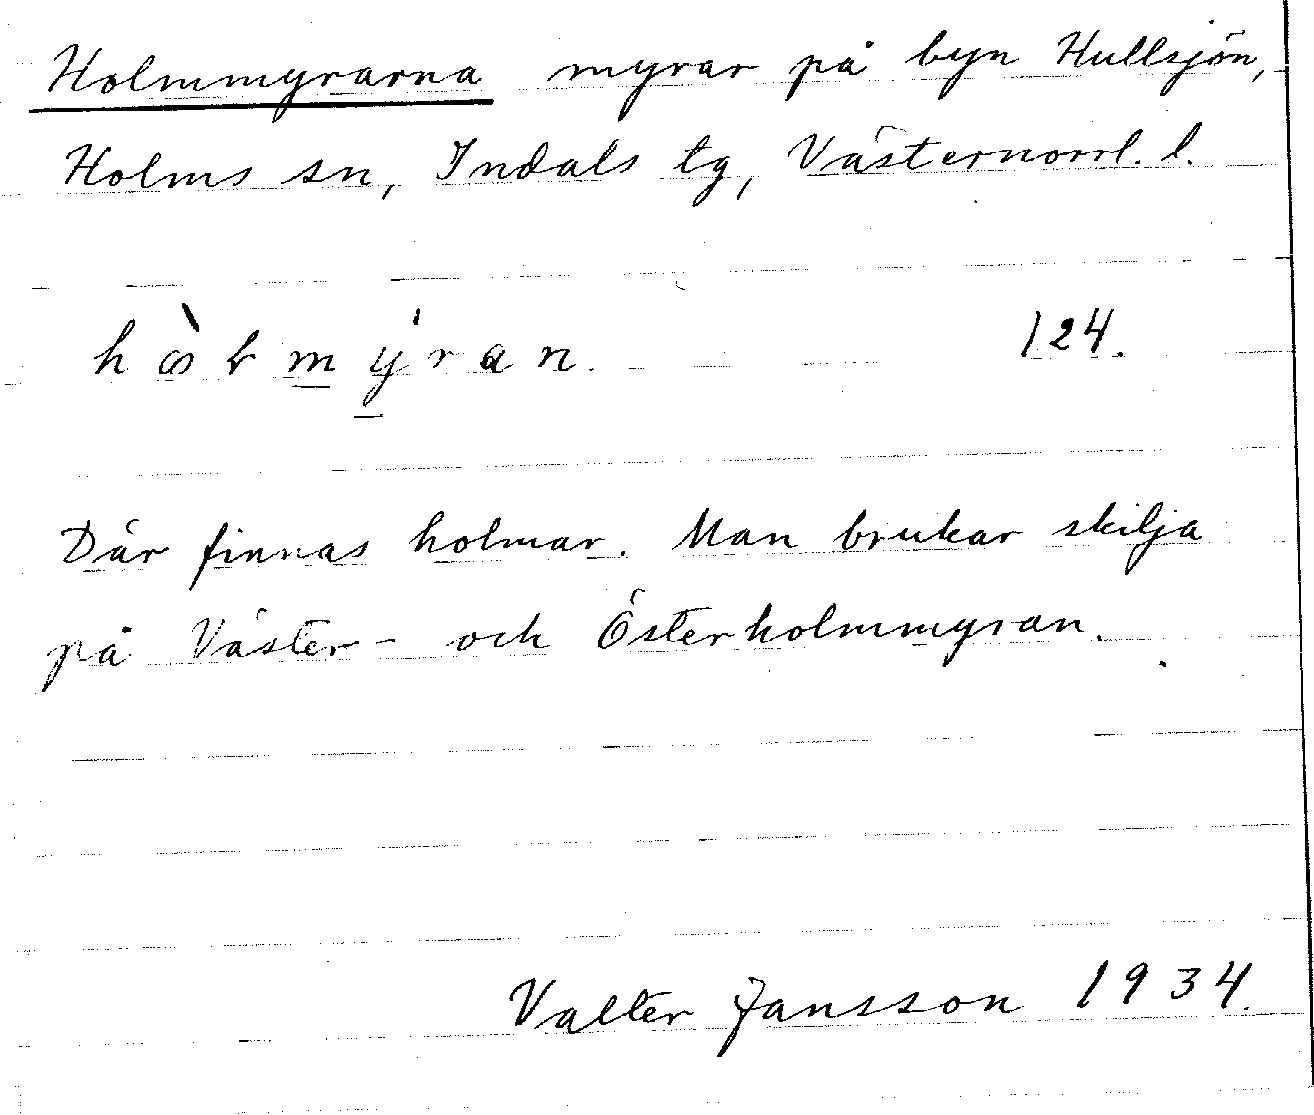 Holmmyrarna myrar på byn Hullsjön,
Holms sn, Indals tg, Västernorrl. l.
124.
Där finnas holmar. Man brukar skilja
på Väster- och Österholmmyran.
Valter Jansson 1934.